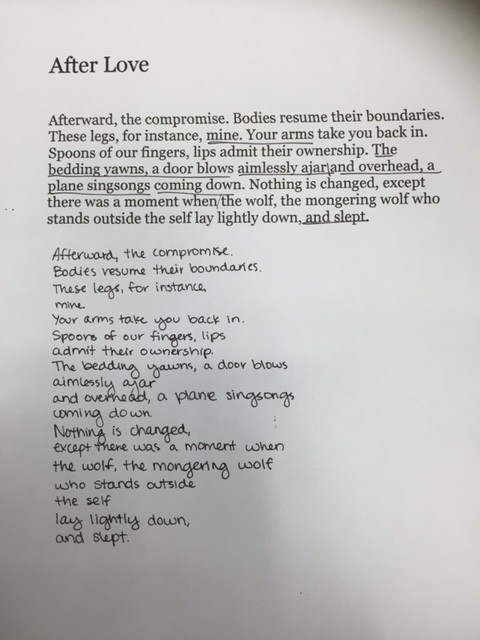 After Love
Afterward, the compromise. Bodies resume their boundaries.
These legs, for instance, mine. Your arms take you back in.
Spoons of our fingers, lips admit their ownership. The
bedding yawns, a door blows aimlessly ajar and overhead, a
plane singsongs coming down. Nothing is changed, except
there was a moment when the wolf, the mongering wolf who
stands outside the self lay lightly down, and slept.
Afterward, the compromise.
Bodies resume their boundaries.
These legs, for instance,
mine.
Your arms take you back in.
Spoons of our fingers, lips
admit their ownership.
The bedding yawns, a door blows
aimlessly ajar
and overhead, a plane singsongs
coming down.
Nothing is changed,
except there was a moment when
the wolf, the mongering wolf
who stands outside
the self
lay lightly down,
and slept.